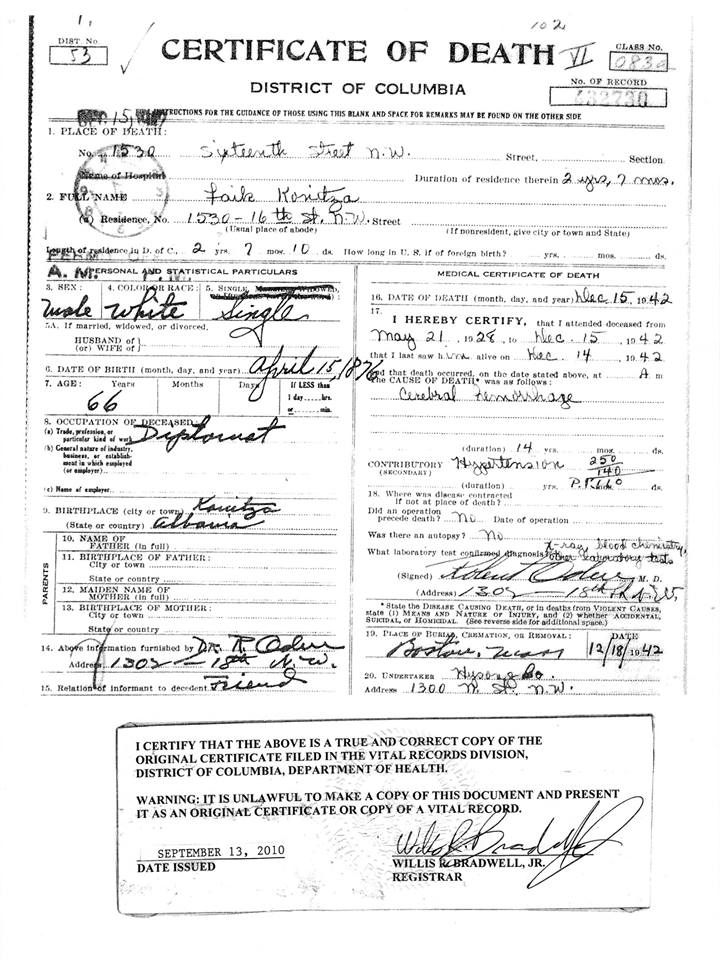 1. 102
DIST. No. CERTIFICATE OF DEATH VI CLASS No.
53 083a
DISTRICT OF COLUMBIA No. OF RECORD
432730
INSTRUCTIONS FOR THE GUIDANCE OF THOSE USING THIS BLANK AND SPACE FOR REMARKS MAY BE FOUND ON THE OTHER SIDE
1. PLACE OF DEATH:
No. 1530 Sixteenth Street N.W. Street, Section
Name of Hospital Duration of residence therein 2 yrs, 7 mos.
2. FULL NAME Faik Konitza
(a) Residence, No. 1530-16th St. N.W. Street
(Usual place of abode) (If nonresident, give city or town and State)
Length of residence in D. of C., 2 yrs. 7 mos. 10 ds. How long in U. S. if of foreign birth? yrs. mos. ds.
A. M. PERSONAL AND STATISTICAL PARTICULARS
3. SEX: 4. COLOR OR RACE: 5. SINGLE,
male white Single
5A. If married, widowed, or divorced,
HUSBAND of
(or) WIFE of
6. DATE OF BIRTH (month, day, and year) April 15, 1876
7. AGE: Years Months Days If LESS than
66 1 day.....hrs.
or.....min.
8. OCCUPATION OF DECEASED
(a) Trade, profession, or
particular kind of work Diplomat
(b) General nature of industry,
business, or establish-
ment in which employed
(or employer)
(c) Name of employer
9. BIRTHPLACE (city or town) Konitza
(State or country) Albania
PARENTS
10. NAME OF
FATHER (in full)
11. BIRTHPLACE OF FATHER:
City or town
State or country
12. MAIDEN NAME OF
MOTHER (in full)
13. BIRTHPLACE OF MOTHER:
City or town
State or country
14. Above information furnished by Dr. R. Oden
Address 1302 — 18th N.W.
15. Relation of informant to decedent Friend
MEDICAL CERTIFICATE OF DEATH
16. DATE OF DEATH (month, day, and year) Dec 15, 1942
17.
I HEREBY CERTIFY, that I attended deceased from
May 21, 1928, to Dec. 15, 1942
that I last saw him alive on Dec. 14, 1942
and that death occurred, on the date stated above, at A m
The CAUSE OF DEATH* was as follows:
Cerebral Hemorrhage
(duration) 14 yrs. mos. ds.
CONTRIBUTORY Hypertension 250
(SECONDARY) 140
(duration) yrs. P.P. 110 mos. ds.
18. Where was disease contracted
if not at place of death?
Did an operation
precede death? No Date of operation
Was there an autopsy? No
What laboratory test confirmed diagnosis? X-ray, blood chemistry,
other laboratory tests
(Signed) Robert Oden M. D.
(Address) 1302 — 18th St. N.W.
* State the DISEASE CAUSING DEATH, or in deaths from VIOLENT CAUSES,
state (1) MEANS AND NATURE OF INJURY, and (2) whether ACCIDENTAL,
SUICIDAL, or HOMICIDAL. (See reverse side for additional space.)
19. PLACE OF BURIAL, CREMATION, OR REMOVAL: DATE
Boston, Mass 12/18/1942
20. UNDERTAKER Hysong Co.
Address 1300 N. St. N.W.
I CERTIFY THAT THE ABOVE IS A TRUE AND CORRECT COPY OF THE
ORIGINAL CERTIFICATE FILED IN THE VITAL RECORDS DIVISION,
DISTRICT OF COLUMBIA, DEPARTMENT OF HEALTH.
WARNING: IT IS UNLAWFUL TO MAKE A COPY OF THIS DOCUMENT AND PRESENT
IT AS AN ORIGINAL CERTIFICATE OR COPY OF A VITAL RECORD.
SEPTEMBER 13, 2010
DATE ISSUED
WILLIS R. BRADWELL, JR.
REGISTRAR